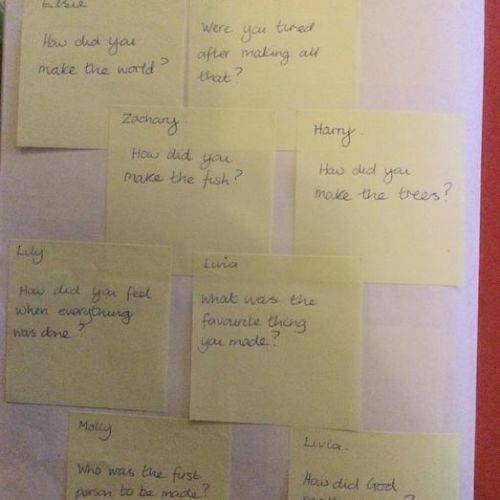 Elsie
How did you
make the world?
Were you tired
after making all
that?
Zachary.
How did you
make the fish?
Harry.
How did you
make the trees?
Lily
How did you feel
when everything
was done?
Livia
What was the
favourite thing
you made?
Molly
Who was the first
person to be made?
Livia.
How did God